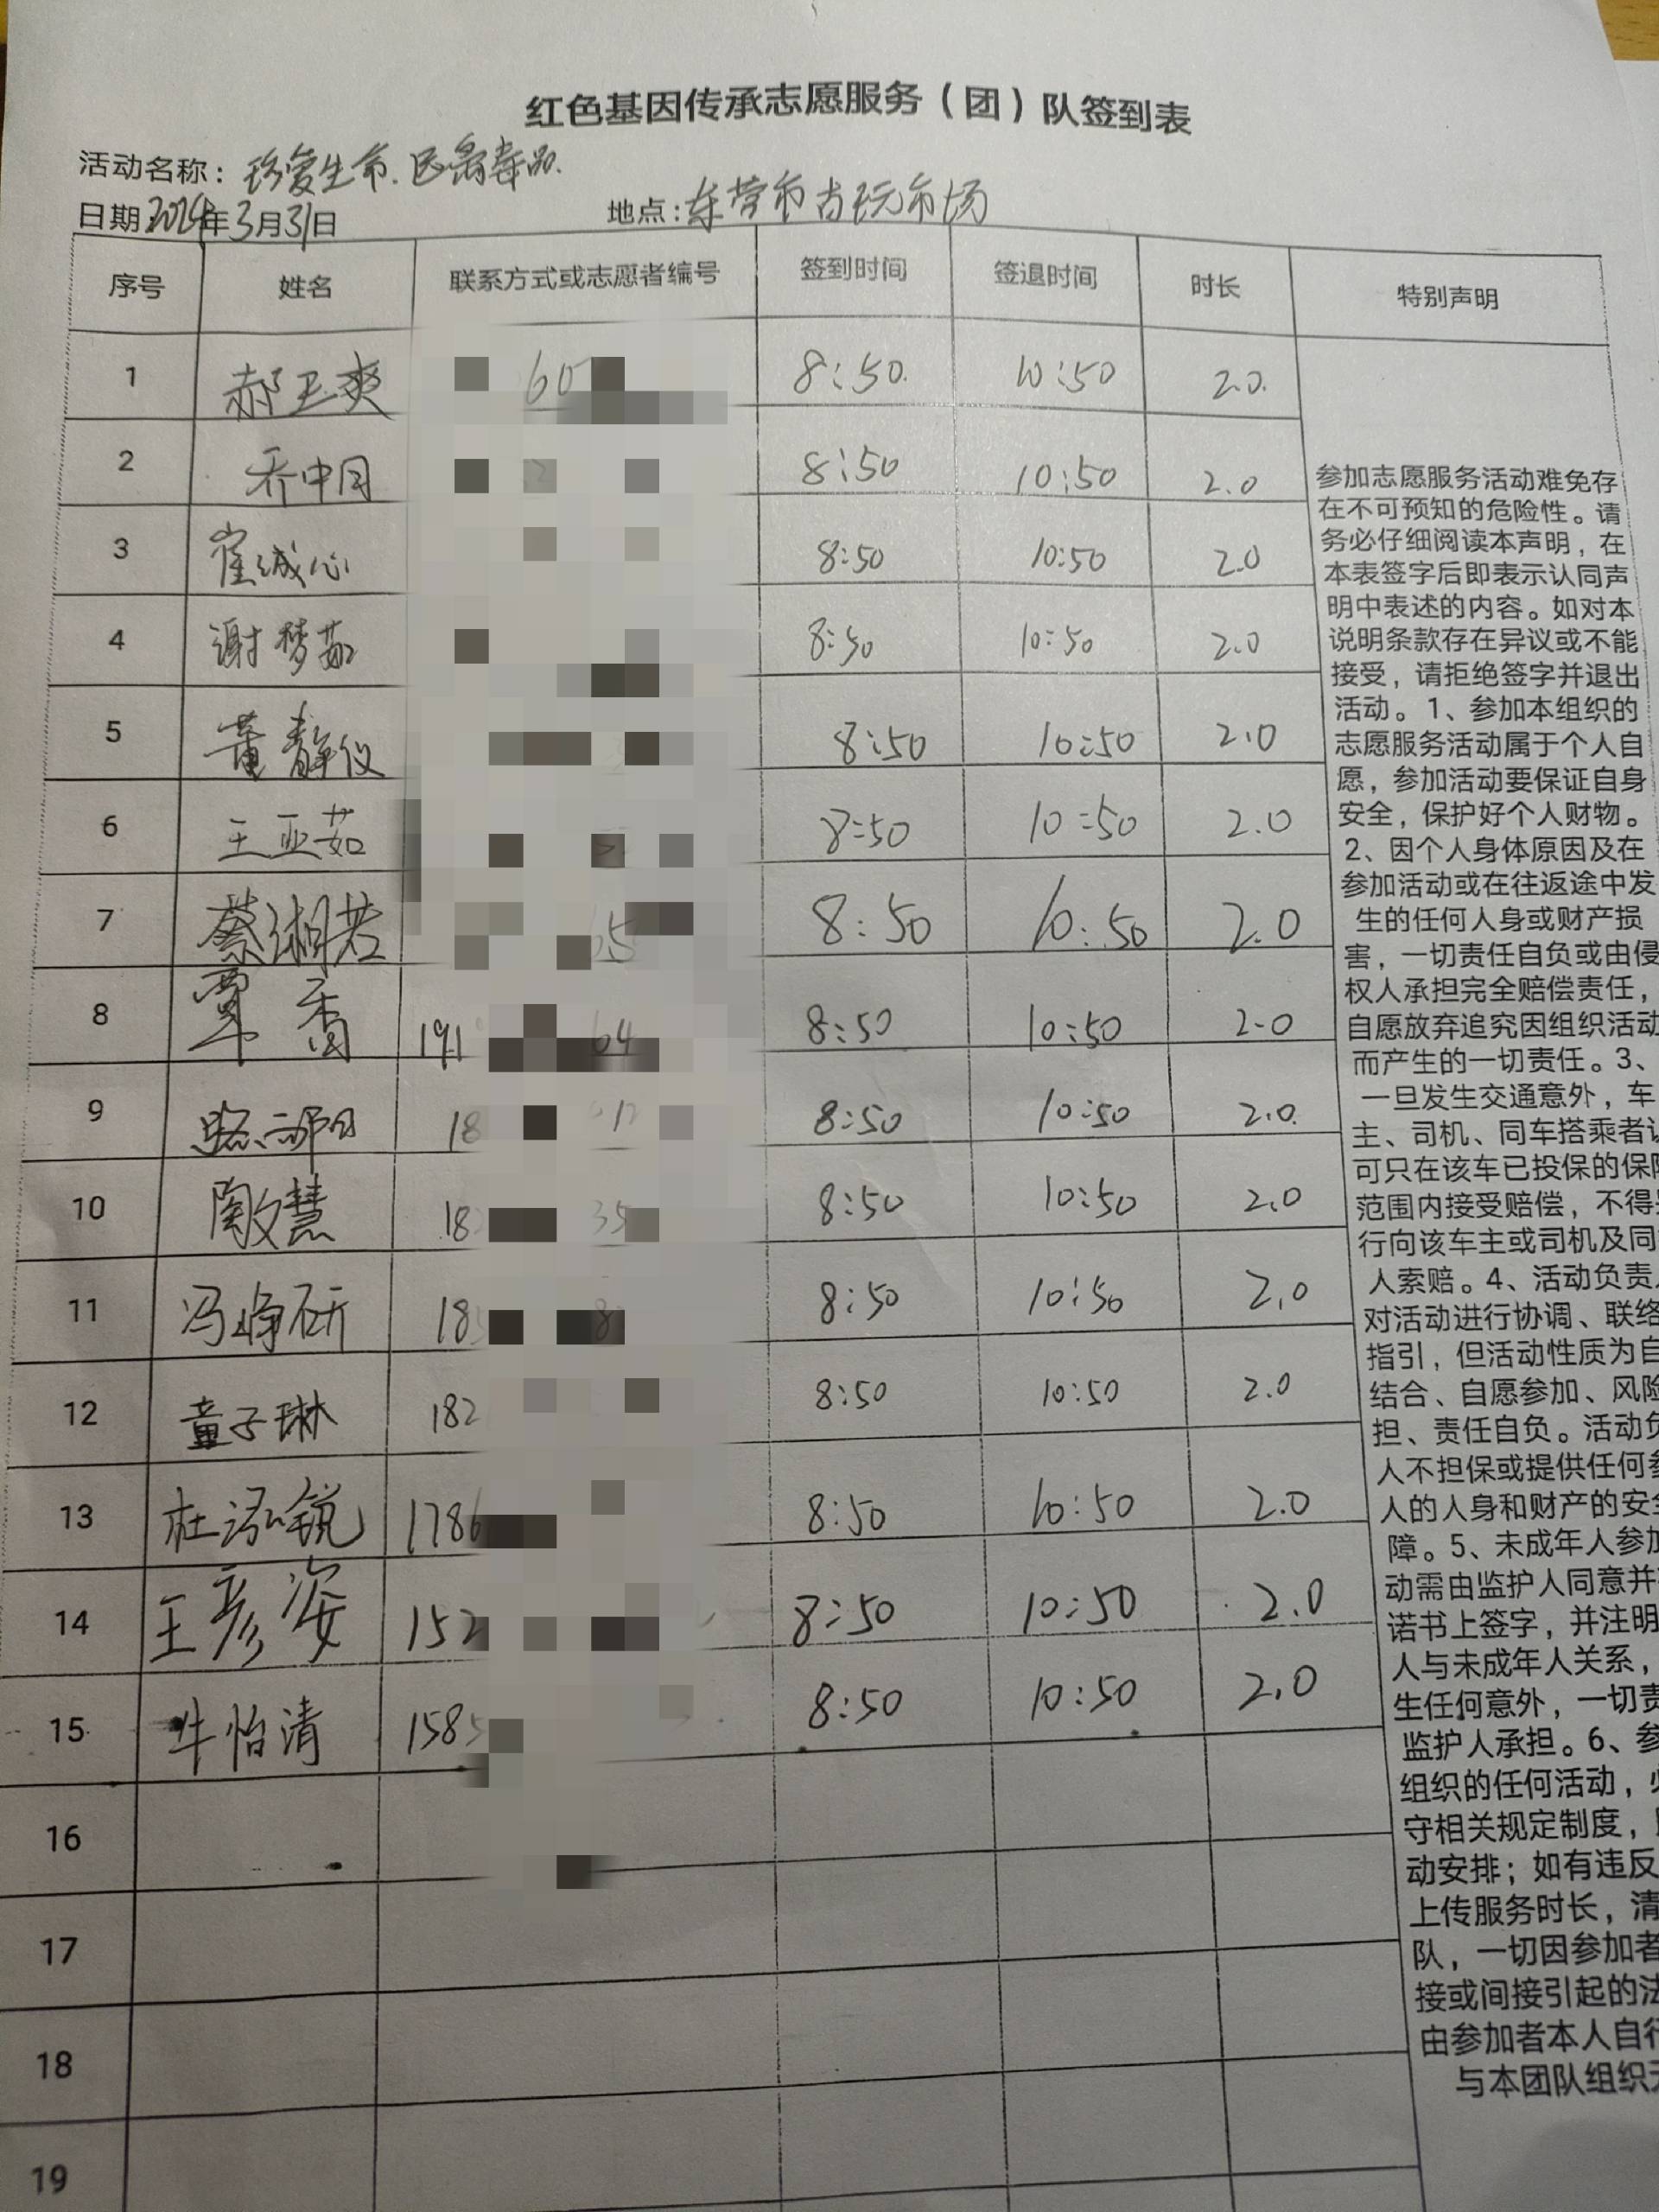 红色基因传承志愿服务（团）队签到表
活动名称：珍爱生命.远离毒品.
日期2024年3月31日 地点：东营市古玩市场
序号 姓名 联系方式或志愿者编号 签到时间 签退时间 时长 特别声明
1 郝玉爽 60 8:50. 10:50 2.0.
2 乔中月 8:50 10:50 2.0
3 崔诚心 8:50 10:50 2.0
4 谢梦茹 8:50 10:50 2.0
5 董静仪 8:50 10:50 2.0
6 王亚茹 8:50 10:50 2.0
7 蔡湘若 8:50 10:50 2.0
8 覃香 191 64 8:50 10:50 2.0
9 18 8:50 10:50 2.0.
10 陶文慧 18 35 8:50 10:50 2.0
11 冯峥研 18 8:50 10:50 2.0
12 童子琳 182 8:50 10:50 2.0
13 杜泓锐 1786 8:50 10:50 2.0
14 王彦姿 152 8:50 10:50 2.0
15 牛怡清 1585 8:50 10:50 2.0
16
17
18
19
参加志愿服务活动难免存
在不可预知的危险性。请
务必仔细阅读本声明，在
本表签字后即表示认同声
明中表述的内容。如对本
说明条款存在异议或不能
接受，请拒绝签字并退出
活动。1、参加本组织的
志愿服务活动属于个人自
愿，参加活动要保证自身
安全，保护好个人财物。
2、因个人身体原因及在
参加活动或在往返途中发
生的任何人身或财产损
害，一切责任自负或由侵
权人承担完全赔偿责任，
自愿放弃追究因组织活动
而产生的一切责任。3、
一旦发生交通意外，车
主、司机、同车搭乘者
可只在该车已投保的保
范围内接受赔偿，不得
行向该车主或司机及同
人索赔。4、活动负责
对活动进行协调、联络
指引，但活动性质为自
结合、自愿参加、风险
担、责任自负。活动负
人不担保或提供任何参
人的人身和财产的安全
障。5、未成年人参加
动需由监护人同意并
诺书上签字，并注明
人与未成年人关系，
生任何意外，一切责
监护人承担。6、参
组织的任何活动，
守相关规定制度，
动安排；如有违反
上传服务时长，清
队，一切因参加者
接或间接引起的法
由参加者本人自行
与本团队组织无